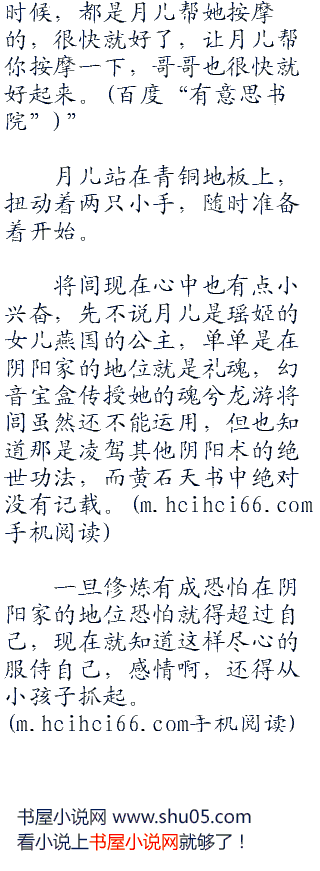 时候，都是月儿帮她按摩
的，很快就好了，让月儿帮
你按摩一下，哥哥也很快就
好起来。(百度“有意思书
院”)”
月儿站在青铜地板上，
扭动着两只小手，随时准备
着开始。
将闾现在心中也有点小
兴奋，先不说月儿是瑶姬的
女儿燕国的公主，单单是在
阴阳家的地位就是礼魂，幻
音宝盒传授她的魂兮龙游将
闾虽然还不能运用，但也知
道那是凌驾其他阴阳术的绝
世功法，而黄石天书中绝对
没有记载。(m.hcihci66.com
手机阅读)
一旦修炼有成恐怕在阴
阳家的地位恐怕就得超过自
己，现在就知道这样尽心的
服侍自己，感情啊，还得从
小孩子抓起。
(m.hcihci66.com手机阅读)
书屋小说网 www.shu05.com
看小说上书屋小说网就够了！